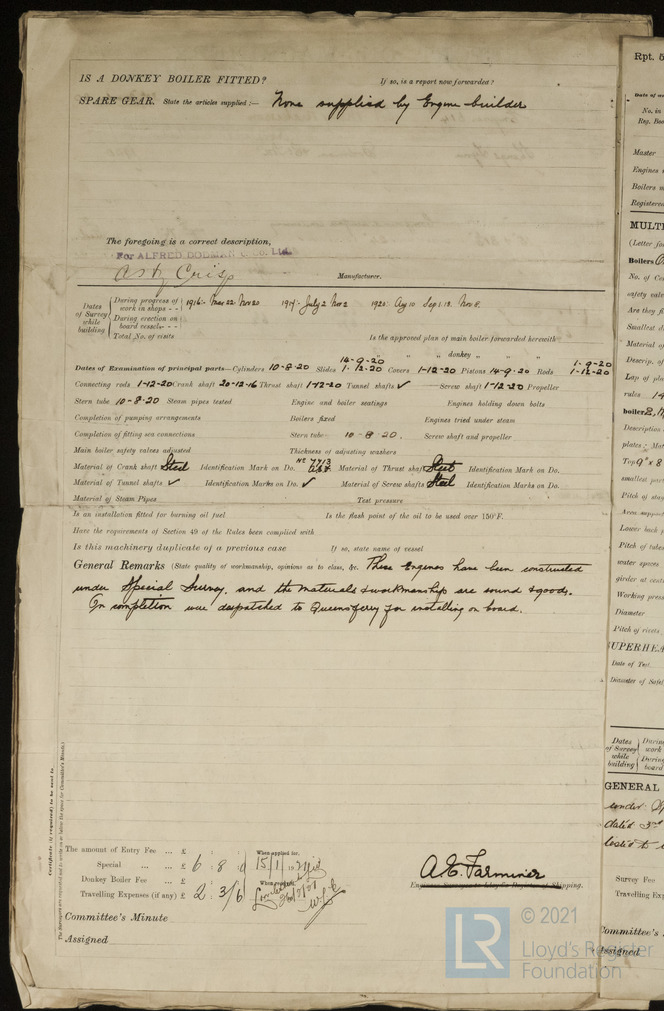 IS A DONKEY BOILER FITTED? If so, is a report now forwarded?
SPARE GEAR. State the articles supplied:— None supplied by Engine builder
The foregoing is a correct description,
For ALFRED DODMAN & Co. Ltd.
Manufacturer.
Dates of Survey while building
During progress of work in shops - - 1916: Mar 22 Nov 20 1917: July 2 Nov 2 1920: Aug 10 Sep 1. 13. Nov 8.
During erection on board vessel - - -
Total No. of visits
Is the approved plan of main boiler forwarded herewith
" " " donkey " " "
Dates of Examination of principal parts—Cylinders 10-8-20 Slides 14-9-20 1-12-20 Covers 1-12-20 Pistons 14-9-20 Rods 1-9-20 1-12-20
Connecting rods 1-12-20 Crank shaft 20-12-16 Thrust shaft 1-12-20 Tunnel shafts ✓ Screw shaft 1-12-20 Propeller
Stern tube 10-8-20 Steam pipes tested Engine and boiler seatings Engines holding down bolts
Completion of pumping arrangements Boilers fixed Engines tried under steam
Completion of fitting sea connections Stern tube 10-8-20. Screw shaft and propeller
Main boiler safety valves adjusted Thickness of adjusting washers
Material of Crank shaft Steel Identification Mark on Do. Nº 7713 Material of Thrust shaft Steel Identification Mark on Do.
Material of Tunnel shafts ✓ Identification Marks on Do. ✓ Material of Screw shafts Steel Identification Marks on Do.
Material of Steam Pipes Test pressure
Is an installation fitted for burning oil fuel Is the flash point of the oil to be used over 150°F.
Have the requirements of Section 49 of the Rules been complied with
Is this machinery duplicate of a previous case If so, state name of vessel
General Remarks (State quality of workmanship, opinions as to class, &c. These Engines have been constructed
under Special Survey, and the materials & workmanship are sound & good.
On completion were despatched to Queensferry for installing on board.
Certificate (if required) to be sent to
The amount of Entry Fee ... £ : : When applied for,
Special ... ... £ 6 : 8 : 15/1/1921
Donkey Boiler Fee ... £ : : When received,
Travelling Expenses (if any) £ 2 : 3/6
A. E. Farminer
Engineer Surveyor to Lloyd's Register of Shipping.
Committee's Minute
Assigned
Rpt. 5
Date of
No. in
Reg. Boo
Master
Engines
Boilers
Registered
MULT
(Letter for
Boilers
No. of
safety valve
Are they fi
Smallest d
Material of
Descrip. of
Lap of pla
rules
boiler
Description
plates: Mat
Top 9" x 8
smallest part
Pitch of stay
Area support
Lower back p
Pitch of tubes
water spaces
girder at cent
Working press
Diameter
Pitch of rivets
SUPERHEA
Date of Test
Diameter of Safet
Dates of Survey while building
During work
During board
GENERAL
under
dated 3rd
tested
Survey Fee
Travelling Exp
Committee's
Assigned
LR © 2021
Lloyd's Register
Foundation